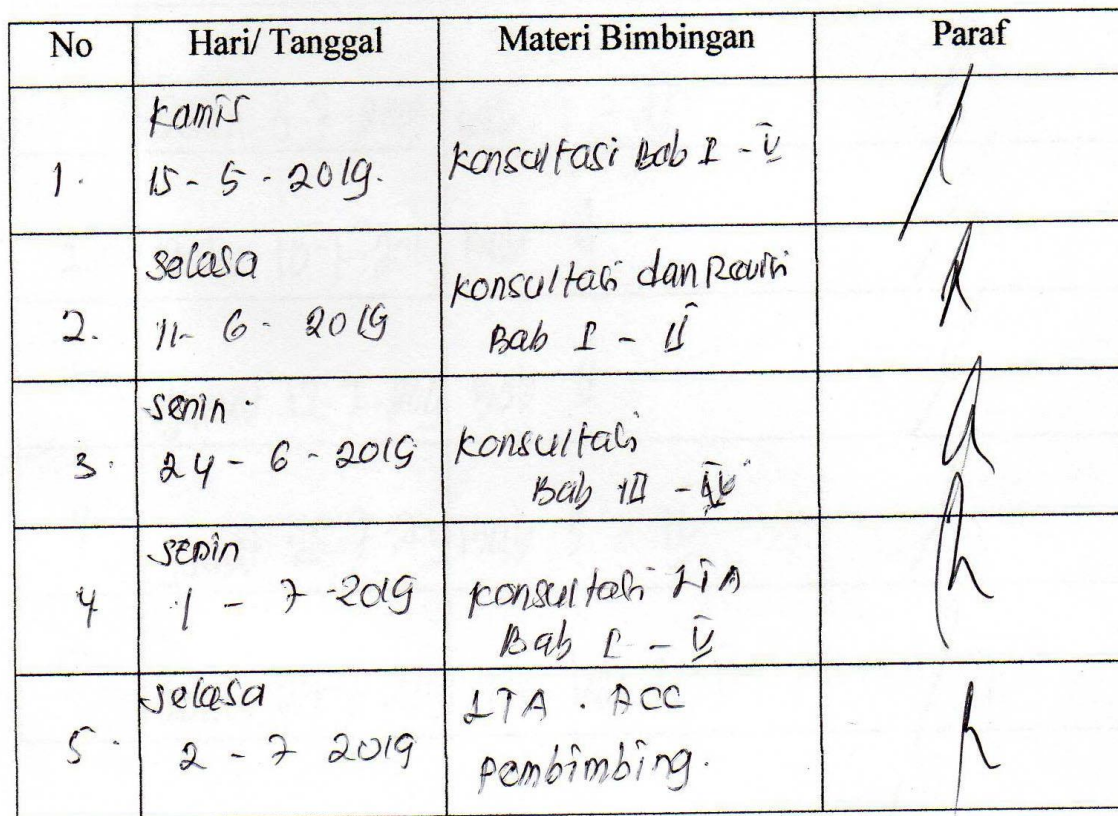 No Hari/ Tanggal Materi Bimbingan Paraf
Kamis
1. 15 - 5 - 2019. Konsultasi Bab I - V
Selasa
Konsultasi dan Revisi
2. 11- 6 - 2019
Bab I - II
Senin
3. 24 - 6 - 2019 Konsultasi
Bab III - IV
Senin
4 1 - 7 - 2019 Konsultasi LTA
Bab I - V
Selasa LTA . ACC
5. 2 - 7 2019 Pembimbing.